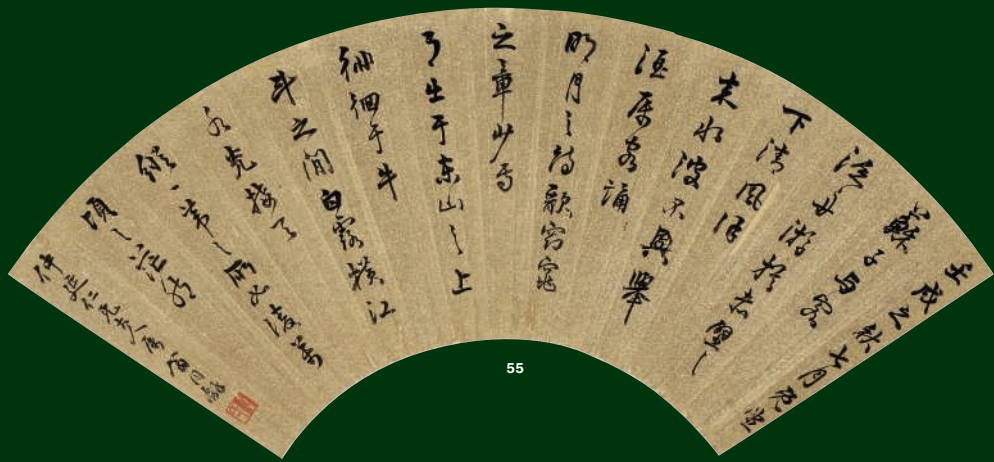 壬戌之秋七月既望
蘇子与客
泛舟游於赤壁之
下清風徐
来水波不興舉
酒属客誦
明月之詩歌窈窕
之章少焉
月出于东山之上
徘徊于牛
斗之间白露横江
水光接天
縱一葦之所如凌萬
頃之茫然
仁兄大人属
55